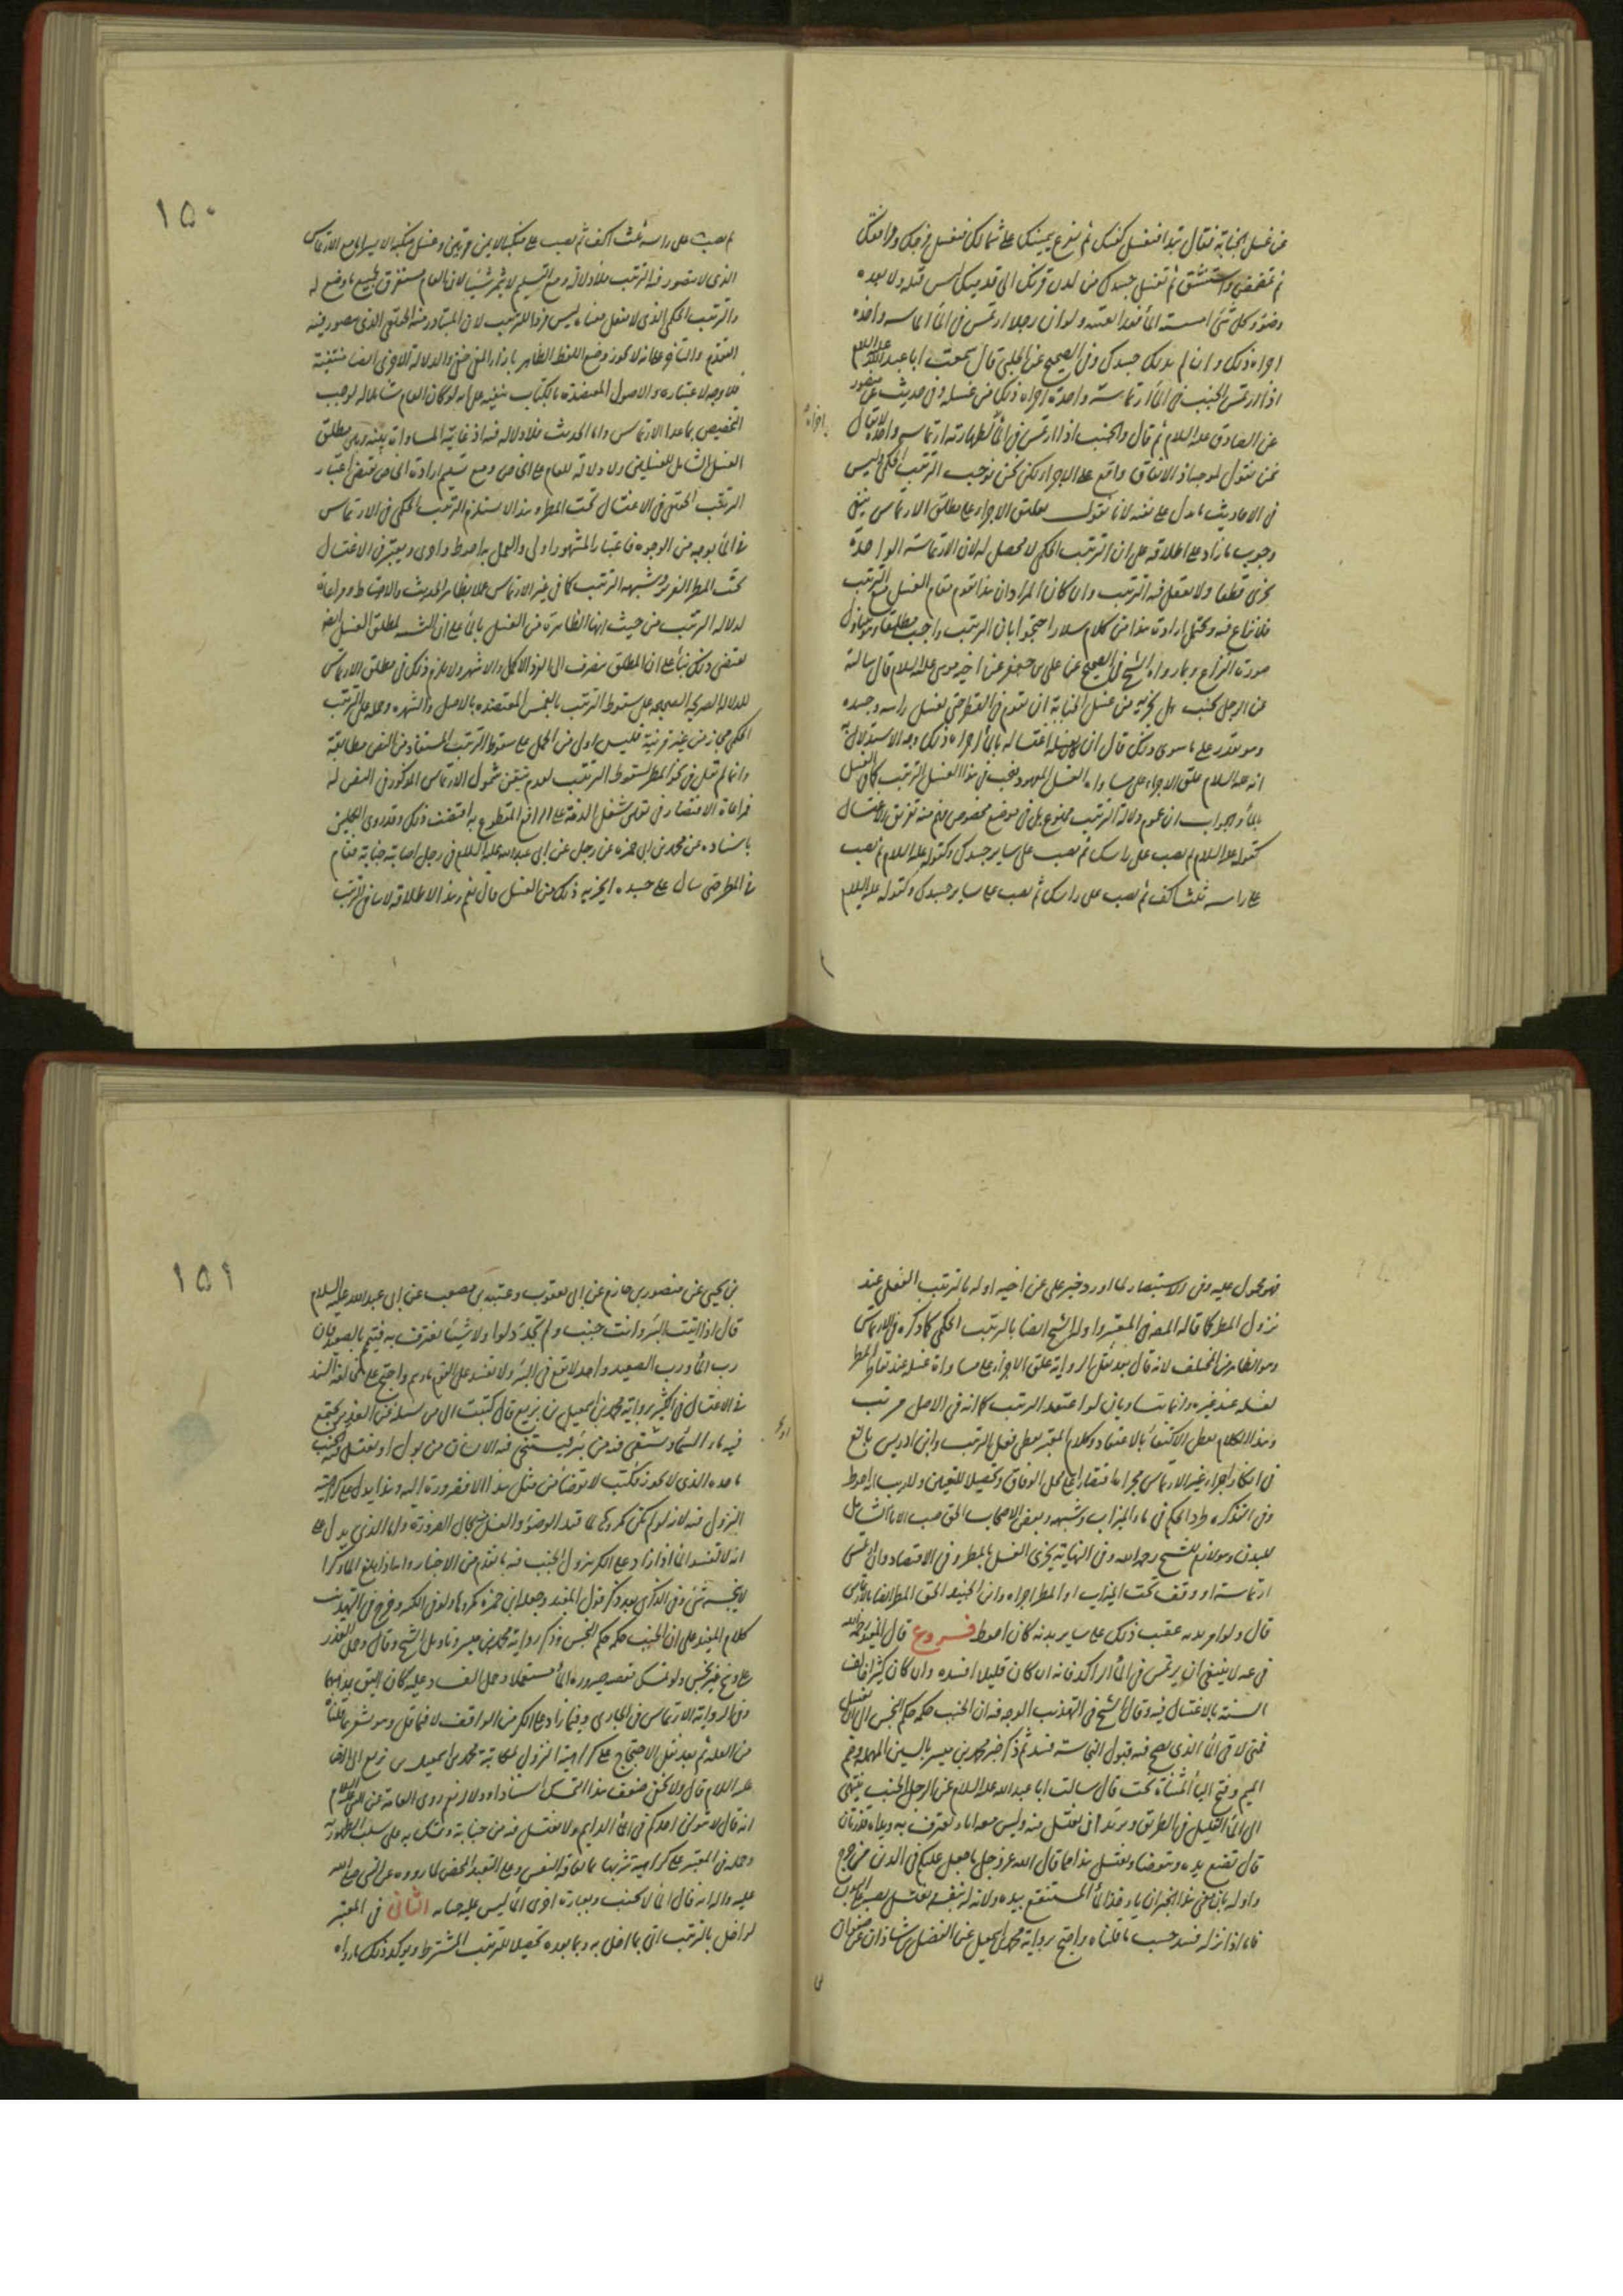 عن غسل الجنابة فقال تبدا فتغسل كفيك ثم تفرغ بيمينك على شمالك فتغسل فرجك ومرافقك
ثم تمضمض واستنشق ثم تغسل جسدك من لدن قرنك الى قدميك ليس قبله ولا بعده
وضوء وكل شئ امسسته الماء فقد انقيته ولو ان رجلا ارتمس في الماء ارتماسة واحدة
اجزاه ذلك وان لم يدلك جسده وفي الصحيح عن الحلبي قال سمعت ابا عبد الله عليه السلام
اذا ارتمس الجنب في الماء ارتماسة واحدة اجزاه ذلك من غسله وفي حديث عن
عن الصادق عليه السلام ثم قال والجنب اذا ارتمس في الماء لطهارته ارتماسة واحدة لا يقال
نحن نقول بموجبه اذ الاتفاق واقع على الاجزاء لكن نحن نوجب الترتيب الحكمي اذ ليس
في الاحاديث ما يدل على نفيه لانا نقول تعليق الاجزاء على مطلق الارتماس ينفي
وجوب ما زاد على اطلاقه على ان الترتيب الحكمي لا محصل له لان الارتماسة الواحدة
يجزى قطعا ولا يعقل فيه الترتيب وان كان المراد ان هذا يقوم مقام الغسل مع الترتيب
فلا نزاع فيه ويحتمل ارادة هذا من كلام سلار احتجوا بان الترتيب واجب مطلقا
صورة النزاع وبما رواه الشيخ في الصحيح عن علي بن جعفر عن اخيه موسى عليه السلام قال سالته
عن الرجل يجنب هل يجزيه من غسل الجنابة ان يقوم في القطر حتى يغسل راسه وجسده
وهو يقدر على ما سوى ذلك قال ان كان يغسله اغتساله بالماء اجزاه ذلك وجه الاستدلال به
انه عليه السلام علق الاجزاء على مساواة الغسل المعهود فيجب في هذا الغسل الترتيب كما في الغسل
بالماء والجواب ان عموم دلالة الترتيب ممنوع بل في موضع مخصوص يفهم منه تفريق الاغتسال
كقوله عليه السلام ثم يصب على راسك ثم يصب على ساير جسدك وكقوله عليه السلام ثم يصب
على راسه ثلث اكف ثم يصب على راسك ثم يصب على ساير جسدك وكقوله عليه السلام
١٥٠
ثم يصب على راسه ثلث اكف ثم يصب على منكبه الايمن مرتين وعلى منكبه الايسر
الذي لا يتصور فيه الترتيب فلا دلالة ومع التسليم لا يثمر شيئا لان العام مستغرق لجميع ما وضع له
والترتيب الحكمي الذي لا يعقل معناه ليس فردا للترتيب لان المتبادر منه الحقيقي الذي يتصور فيه
التقدم والتاخر على انه لا يجوز وضع اللفظ الظاهر بازاء المعنى الخفي والدلالة الاخرى ايضا منتفية
فلا وجه لاعتباره والاصول المعتضدة بالكتاب ينفيه على انه لو كان العام شاملا له لوجب
التخصيص بما عدا الارتماس واما الحديث فلا دلالة فيه اذ غايته المساواة بينه وبين مطلق
الغسل الشامل للغسلين ولا دلالة للعام على الخاص ومع تسليم ارادة الخاص يقتضى اعتبار
الترتيب الحقيقي في الاغتسال تحت المطر وهذا لا يستلزم الترتيب الحكمي في الارتماس
في الماء بوجه من الوجوه فاعتبار المشهور اولى والعمل به احوط واحرى ويعتبر في الاغتسال
تحت المطر الغزير وشبهه الترتيب كما في غير الارتماس عملا بظاهر الحديث والاحتياط ومراعاة
لدلالة الترتيب من حيث انها الظاهرة من الغسل بالماء على ان الشبه لمطلق الغسل ايضا
يقتضى ذلك بناء على ان المطلق ينصرف الى الفرد الاكمل والاشهر ولا يلزم ذلك في مطلق الارتماس
للدلالة الصريحة الصحيحة على سقوط الترتيب بالغمس المعتضدة بالاصل والشهرة وحمله على الترتيب
الحكمي مجاز من غير قرينة فليس اولى من الحمل على سقوط الترتيب المستفاد من النص مطابقة
وانما لم نقل في نحو المطر بسقوط الترتيب لعدم تيقن شمول الارتماس المذكور في النص له
فمراعاة الاقتصار في تيقن شغل الذمة على الرافع المقطوع به اقتضت ذلك وقد روى الكليني
باسناده عن محمد بن ابي حمزة عن رجل عن ابي عبد الله عليه السلام في رجل اصابته جنابة فقام
في المطر حتى سال على جسده ايجزيه ذلك من الغسل قال نعم وهذا الاطلاق لا ينافي الترتيب
فهو محمول عليه وفي الاستبصار لما اورد خبر علي عن اخيه اوله بالترتيب الفعلي عند
نزول المطر كما قاله المص في المعتبر واوله الشيخ ايضا بالترتيب الحكمي كما ذكره في الارتماس
وهو الظاهر من المختلف لانه قال بعد نقل الرواية علق الاجزاء على مساواة غسله عند تقاطر المطر
لغسله عند غيره وانما يتساويان لو اعتقد الترتيب كما انه في الاصل مرتب
وهذا الكلام يعطي الاكتفاء بالاعتقاد وكلام المعتبر يعطي فعل الترتيب وابن ادريس بالغ
في انكار اجراء غير الارتماس مجراه اقتصارا على محل الوفاق وتحصيلا لليقين ولا ريب انه احوط
وفي التذكرة طرد الحكم في ماء الميزاب وشبهه وبعض الاصحاب الحق صب الاناء الشامل
للبدن وهو لازم للشيخ رحمه الله وفي النهاية يجزى الغسل بالمطر وفي الاقتصاد وان ارتمس
ارتماسة او وقف تحت الميزاب او المطر اجزاه وابن الجنيد الحق المطر ايضا بالارتماس
قال ولو امر يده عقب ذلك على ساير بدنه كان احوط فروع قال المفيد رحمه الله
في عه لا ينبغي ان يرتمس في الماء الراكد فانه ان كان قليلا افسده وان كان كثيرا خالف
السنة بالاغتسال فيه وقال الشيخ في التهذيب الوجه فيه ان الجنب حكمه حكم النجس الى ان يغتسل
فمتى لاقى الماء الذي يصح فيه قبول النجاسة فسد ثم ذكر خبر محمد بن ميسر بالسين المهملة وضم
الميم وفتح الياء المثناة تحت قال سالت ابا عبد الله عليه السلام عن الرجل الجنب ينتهى
الى الماء القليل في الطريق ويريد ان يغتسل منه وليس معه اناء يغترف به ويداه قذرتان
قال يضع يده ويتوضا ويغتسل هذا مما قال الله عز وجل ما جعل عليكم في الدين من حرج
واوله بان معنى هذا الخبر ان ياخذ الماء المستنقع بيده ولا ينزله بنفسه يغتسل بصبه على البدن
فاما اذا نزله فسد حسب ما قلناه واحتج برواية محمد بن اسمعيل عن الفضل بن شاذان عن صفوان
١٥١
بن يحيى عن منصور بن حازم عن ابن ابي يعقوب وعنبسة بن مصعب عن ابي عبد الله عليه السلام
قال اذا اتيت البئر وانت جنب ولم تجد دلوا ولا شيئا يغترف به فتيمم بالصعيد فان
رب الماء ورب الصعيد واحد لا تقع في البئر ولا تفسد على القوم ماءهم واحتج على مخالفة السنة
في الاغتسال في الكثير برواية محمد بن اسمعيل بن بزيع قال كتبت الى من يسئله عن الغدير يجتمع
فيه ماء السماء ويستقى فيه من بئر فيستنجى فيه الانسان من بول او يغتسل فيه الجنب
ما حده الذي لا يجوز فكتب لا توضا من مثل هذا الا من ضرورة اليه وهذا يدل على كراهية
النزول فيه لانه لو لم يكن مكروها لما قيد الوضوء والغسل بحال الضرورة واما الذي يدل على
انه لا يفسد الماء اذا زاد على الكر بنزول الجنب فيه ما تقدم من الاخبار وانه اذا بلغ الماء كرا
لا ينجسه شئ وفي الذكرى بعد ذكر قول المفيد وجعله ابن حمزة مكروها ولو في الكثير وخرج في التهذيب
كلام المفيد على ان الجنب حكمه حكم النجس وذكر رواية محمد بن ميسر وتاويل الشيخ وقال وحمل القذر
على وسخ غير نجس ولو تمسك بقضية صيرورة الماء مستعملا وحمل الفساد عليه كان اليق بمذهبهما
وفي الرواية الارتماس في الجاري وفيما زاد على الكر من الواقف لا فيما قل وهو مشعر بما قلناه
من العلة ثم بعد نقل الاحتجاج على كراهية النزول بمكاتبة محمد بن اسمعيل بن بزيع الى الرضا
عليه السلام قال ولا يخفى ضعف هذا التمسك اسنادا ودلالة نعم روى العامة عن النبي عليه السلام
انه قال لا يبولن احدكم في الماء الدايم ولا يغتسل فيه من جنابة وتمسك به على سلب الطهورية
وحمله في المعتبر على كراهية تنزيها لما يعافه النفس وعلى التعبد المحض لما رووه عن النبي صلى الله
عليه واله انه قال الماء لا يجنب وبعبارة اخرى الماء ليس عليه جنابة الثاني في المعتبر
لو اخل بالترتيب اتى بما اخل به وبما بعده تحصيلا للترتيب المشترط ويؤكد ذلك ما رواه